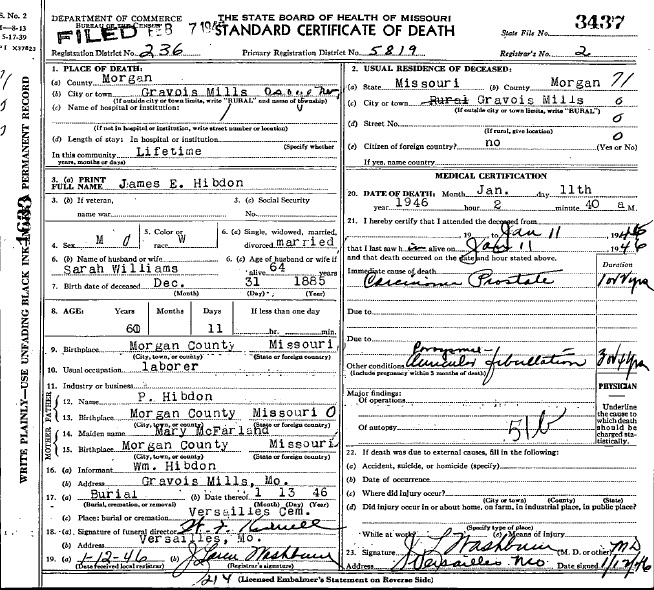 S. No. 2
5-17-39
X37823
WRITE PLAINLY—USE UNFADING BLACK INK—
PERMANENT RECORD
4633
DEPARTMENT OF COMMERCE
Bureau of the Census
FILED FEB 7 1946
THE STATE BOARD OF HEALTH OF MISSOURI
STANDARD CERTIFICATE OF DEATH
State File No. 3437
Registration District No. 236
Primary Registration District No. 5819
Registrar's No. 2
1. PLACE OF DEATH:
(a) County Morgan
(b) City or town Gravois Mills
(If outside city or town limits, write "RURAL" and name of township)
(c) Name of hospital or institution:
(If not in hospital or institution, write street number or location)
(d) Length of stay: In hospital or institution
(Specify whether
In this community Lifetime
years, months or days)
3. (a) PRINT FULL NAME James E. Hibdon
3. (b) If veteran, name war
3. (c) Social Security No.
4. Sex M 0
5. Color or race W
6. (a) Single, widowed, married, divorced married
6. (b) Name of husband or wife Sarah Williams
6. (c) Age of husband or wife if alive 64 years
7. Birth date of deceased Dec. 31 1885
(Month) (Day) (Year)
8. AGE: Years Months Days If less than one day
60 11 hr. min.
9. Birthplace Morgan County Missouri
(City, town, or county) (State or foreign country)
10. Usual occupation laborer
11. Industry or business
FATHER
12. Name P. Hibdon
13. Birthplace Morgan County Missouri 0
(City, town, or county) (State or foreign country)
MOTHER
14. Maiden name Mary McFarland
15. Birthplace Morgan County Missouri
(City, town, or county) (State or foreign country)
16. (a) Informant Wm. Hibdon
(b) Address Gravois Mills, Mo.
17. (a) Burial (b) Date thereof 1 13 46
(Burial, cremation, or removal) (Month) (Day) (Year)
(c) Place: burial or cremation Versailles Cem.
18. (a) Signature of funeral director
(b) Address Versailles, Mo.
19. (a) 1-12-46 (b) J. Washburn
(Date received local registrar) (Registrar's signature)
2. USUAL RESIDENCE OF DECEASED:
(a) State Missouri (b) County Morgan 71
(c) City or town Rural Gravois Mills 0
(If outside city or town limits, write "RURAL")
(d) Street No. 0
(If rural, give location)
(e) Citizen of foreign country? no (Yes or No) 0
If yes, name country
MEDICAL CERTIFICATION
20. DATE OF DEATH: Month Jan. day 11th
year 1946 hour 2 minute 40 a M.
21. I hereby certify that I attended the deceased from
19 to Jan 11 1946
that I last saw h alive on Jan 11 1946
and that death occurred on the date and hour stated above.
Duration
Immediate cause of death
Carcinoma Prostate
Due to
Due to
Other conditions Auricular fibrillation
(Include pregnancy within 3 months of death)
PHYSICIAN
Major findings:
Of operations
Of autopsy 51b
Underline the cause to which death should be charged statistically.
22. If death was due to external causes, fill in the following:
(a) Accident, suicide, or homicide (specify)
(b) Date of occurrence
(c) Where did injury occur?
(City or town) (County) (State)
(d) Did injury occur in or about home, on farm, in industrial place, in public place?
(Specify type of place)
While at work? (e) Means of injury
23. Signature J L Washburn (M. D. or other) MD
Address Versailles Mo Date signed 1/12/46
214 (Licensed Embalmer's Statement on Reverse Side)